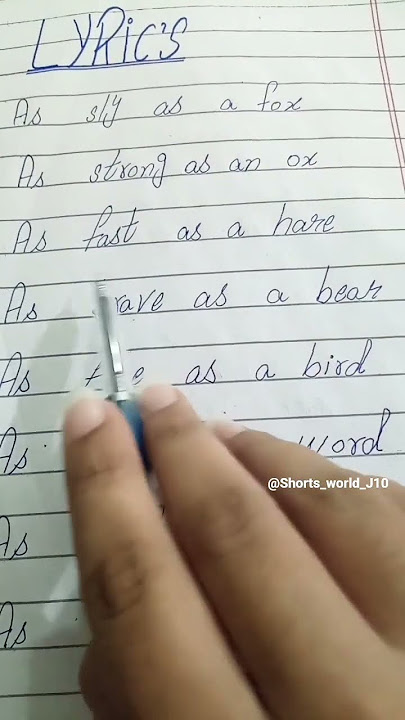 LYRIC'S
As sly as a fox
As strong as an ox
As fast as a hare
As rave as a bear
As as a bird
As word
@Shorts_world_J10
As
As